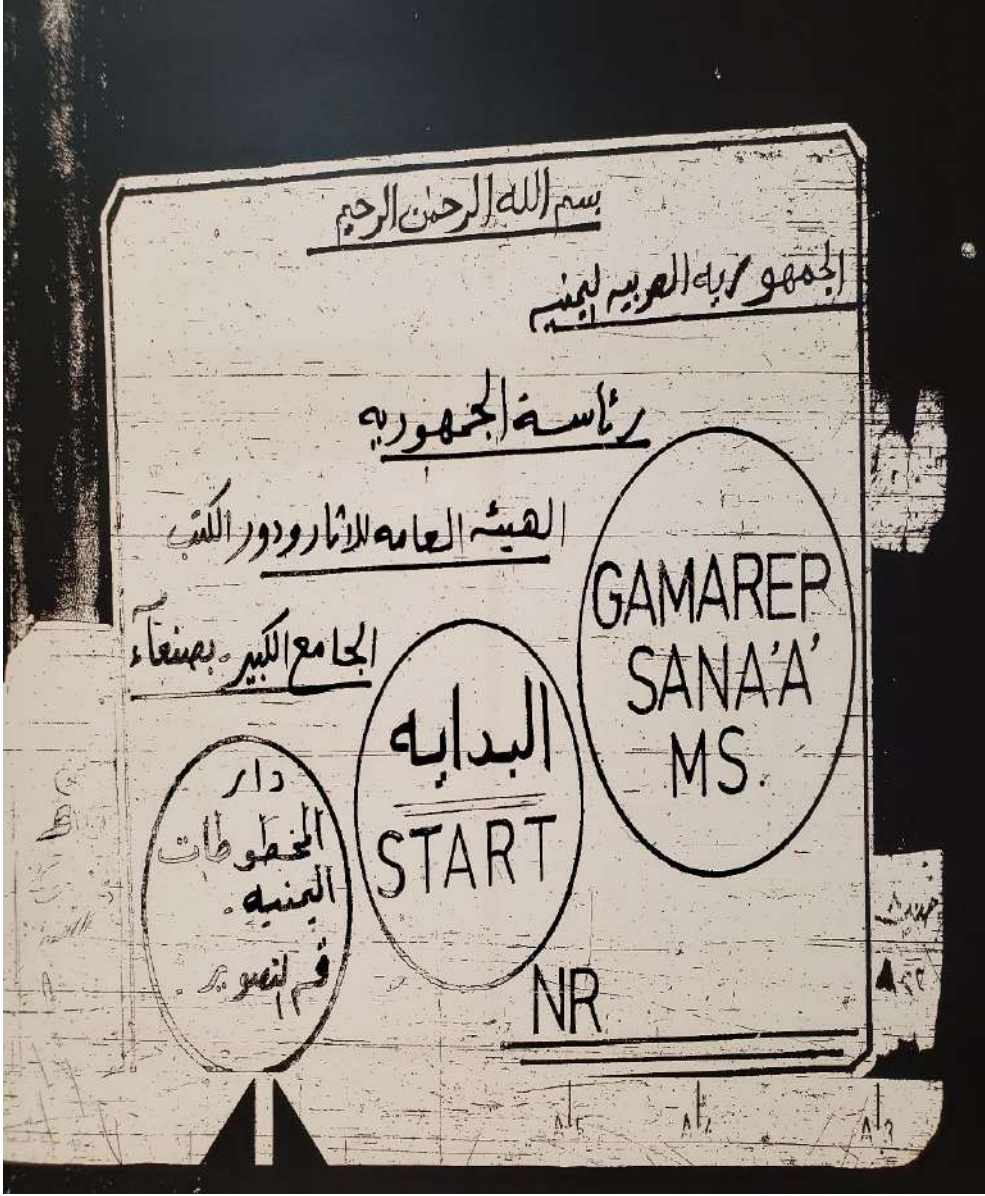 بسم الله الرحمن الرحيم
الجمهوريه العربيه ليمنيه
رئاسة الجمهوريه
الهيئه العامه للاثار ودور الكتب
الجامع الكبير. بصنعآء
GAMAREP
SANA'A'
MS.
البدايه
START
دار
المخطوطات
اليمنيه.
قسم التصوير.
NR
A5
A4
A3